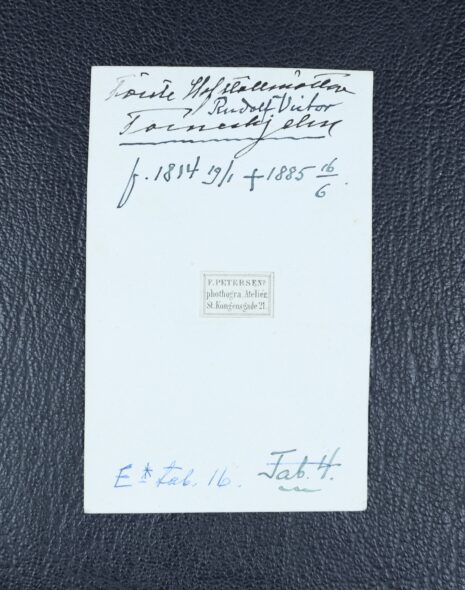 Förste Hofstallmästare
Rudolf Victor
Tornerhjelm
f. 1814 19/1 + 1885 16/6.
F. PETERSENS
phothogra. Atelier,
St. Kongensgade 21.
E* tab. 16. Tab. 4.